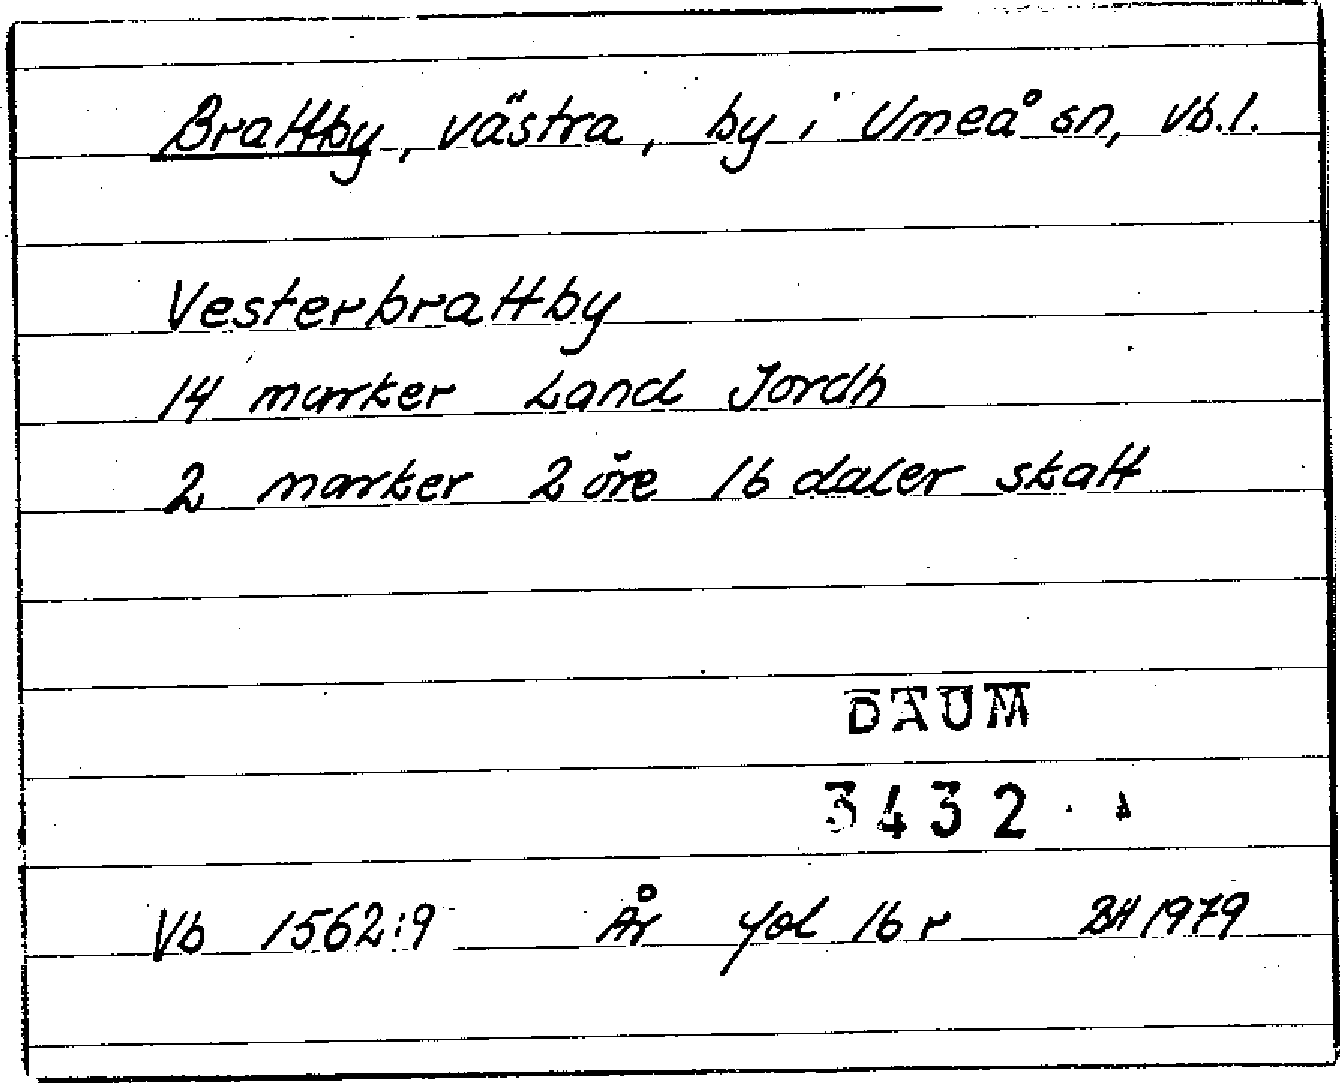 Brattby, västra, by i Umeå sn, Vb.l.
Vesterbrattby
14 marker Land Jordh
2 marker 2 öre 16 daler skatt
DAUM
3432
Vb 1562:9 År fol 16 r BH 1979